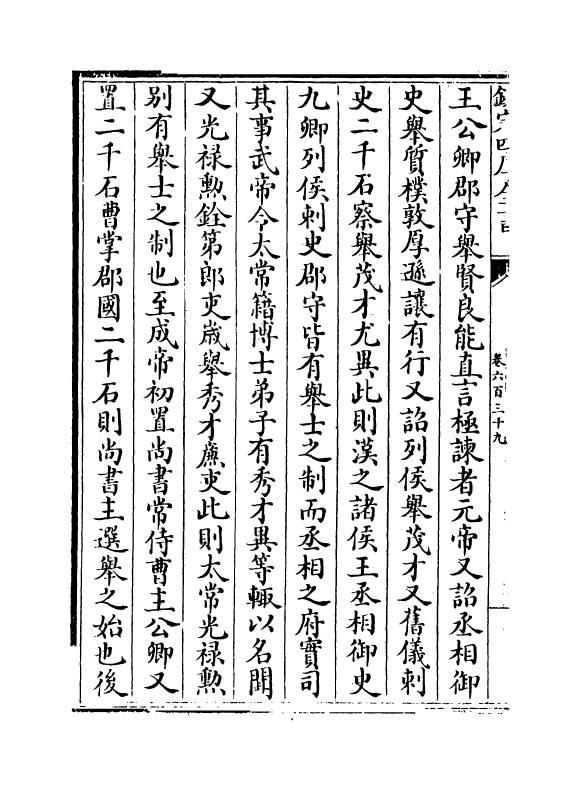 卷六百三十九
王公卿郡守舉賢良能直言極諫者元帝又詔丞相御
史舉質樸敦厚遜讓有行又詔列侯舉茂才又舊儀刺
史二千石察舉茂才尤異此則漢之諸侯王丞相御史
九卿列侯刺史郡守皆有舉士之制而丞相之府實司
其事武帝令太常籍博士弟子有秀才異等輙以名聞
又光禄勲銓第郎吏嵗舉秀才廉吏此則太常光禄勲
别有舉士之制也至成帝初置尚書常侍曹主公卿又
置二千石曹掌郡國二千石則尚書主選舉之始也後